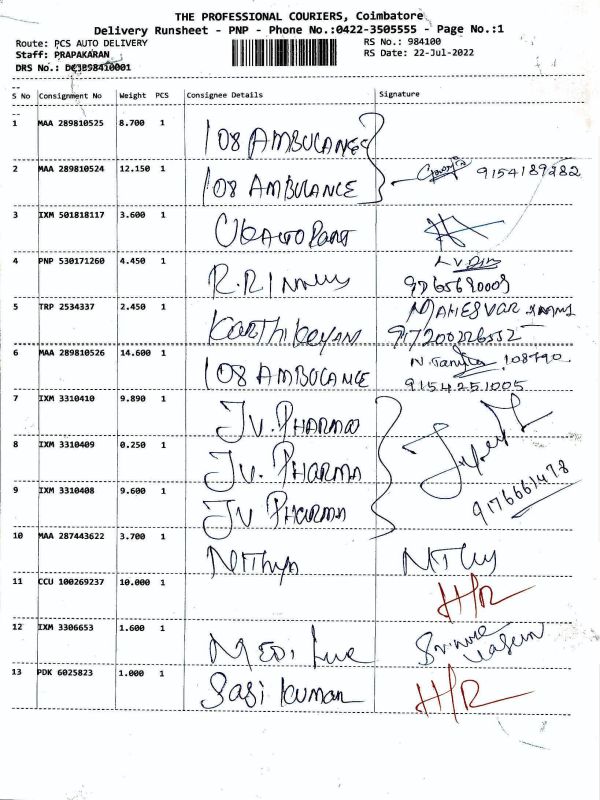 THE PROFESSIONAL COURIERS, Coimbatore
Delivery Runsheet - PNP - Phone No.:0422-3505555 - Page No.:1
Route: PCS AUTO DELIVERY RS No.: 984100
Staff: PRAPAKARAN RS Date: 22-Jul-2022
DRS No.:
S No Consignment No Weight PCS Consignee Details Signature
1 MAA 289810525 8.700 1 108 AMBULANCE
2 MAA 289810524 12.150 1 108 AMBULANCE 9154189282
3 IXM 501818117 3.600 1
4 PNP 530171260 4.450 1 R.R
5 TRP 2534337 2.450 1 Karthikeyan MAHESVAR
917200226552
6 MAA 289810526 14.600 1 108 AMBULANCE
9154251005
7 IXM 3310410 9.890 1 JV. PHARMA
8 IXM 3310409 0.250 1 JV. PHARMA
9 IXM 3310408 9.600 1 JV PHARMA 9176661478
10 MAA 287443622 3.700 1 Nithya
11 CCU 100269237 10.000 1 H/R
12 IXM 3306653 1.600 1 MEDI
13 PDK 6025823 1.000 1 Sasi Kumar H/R